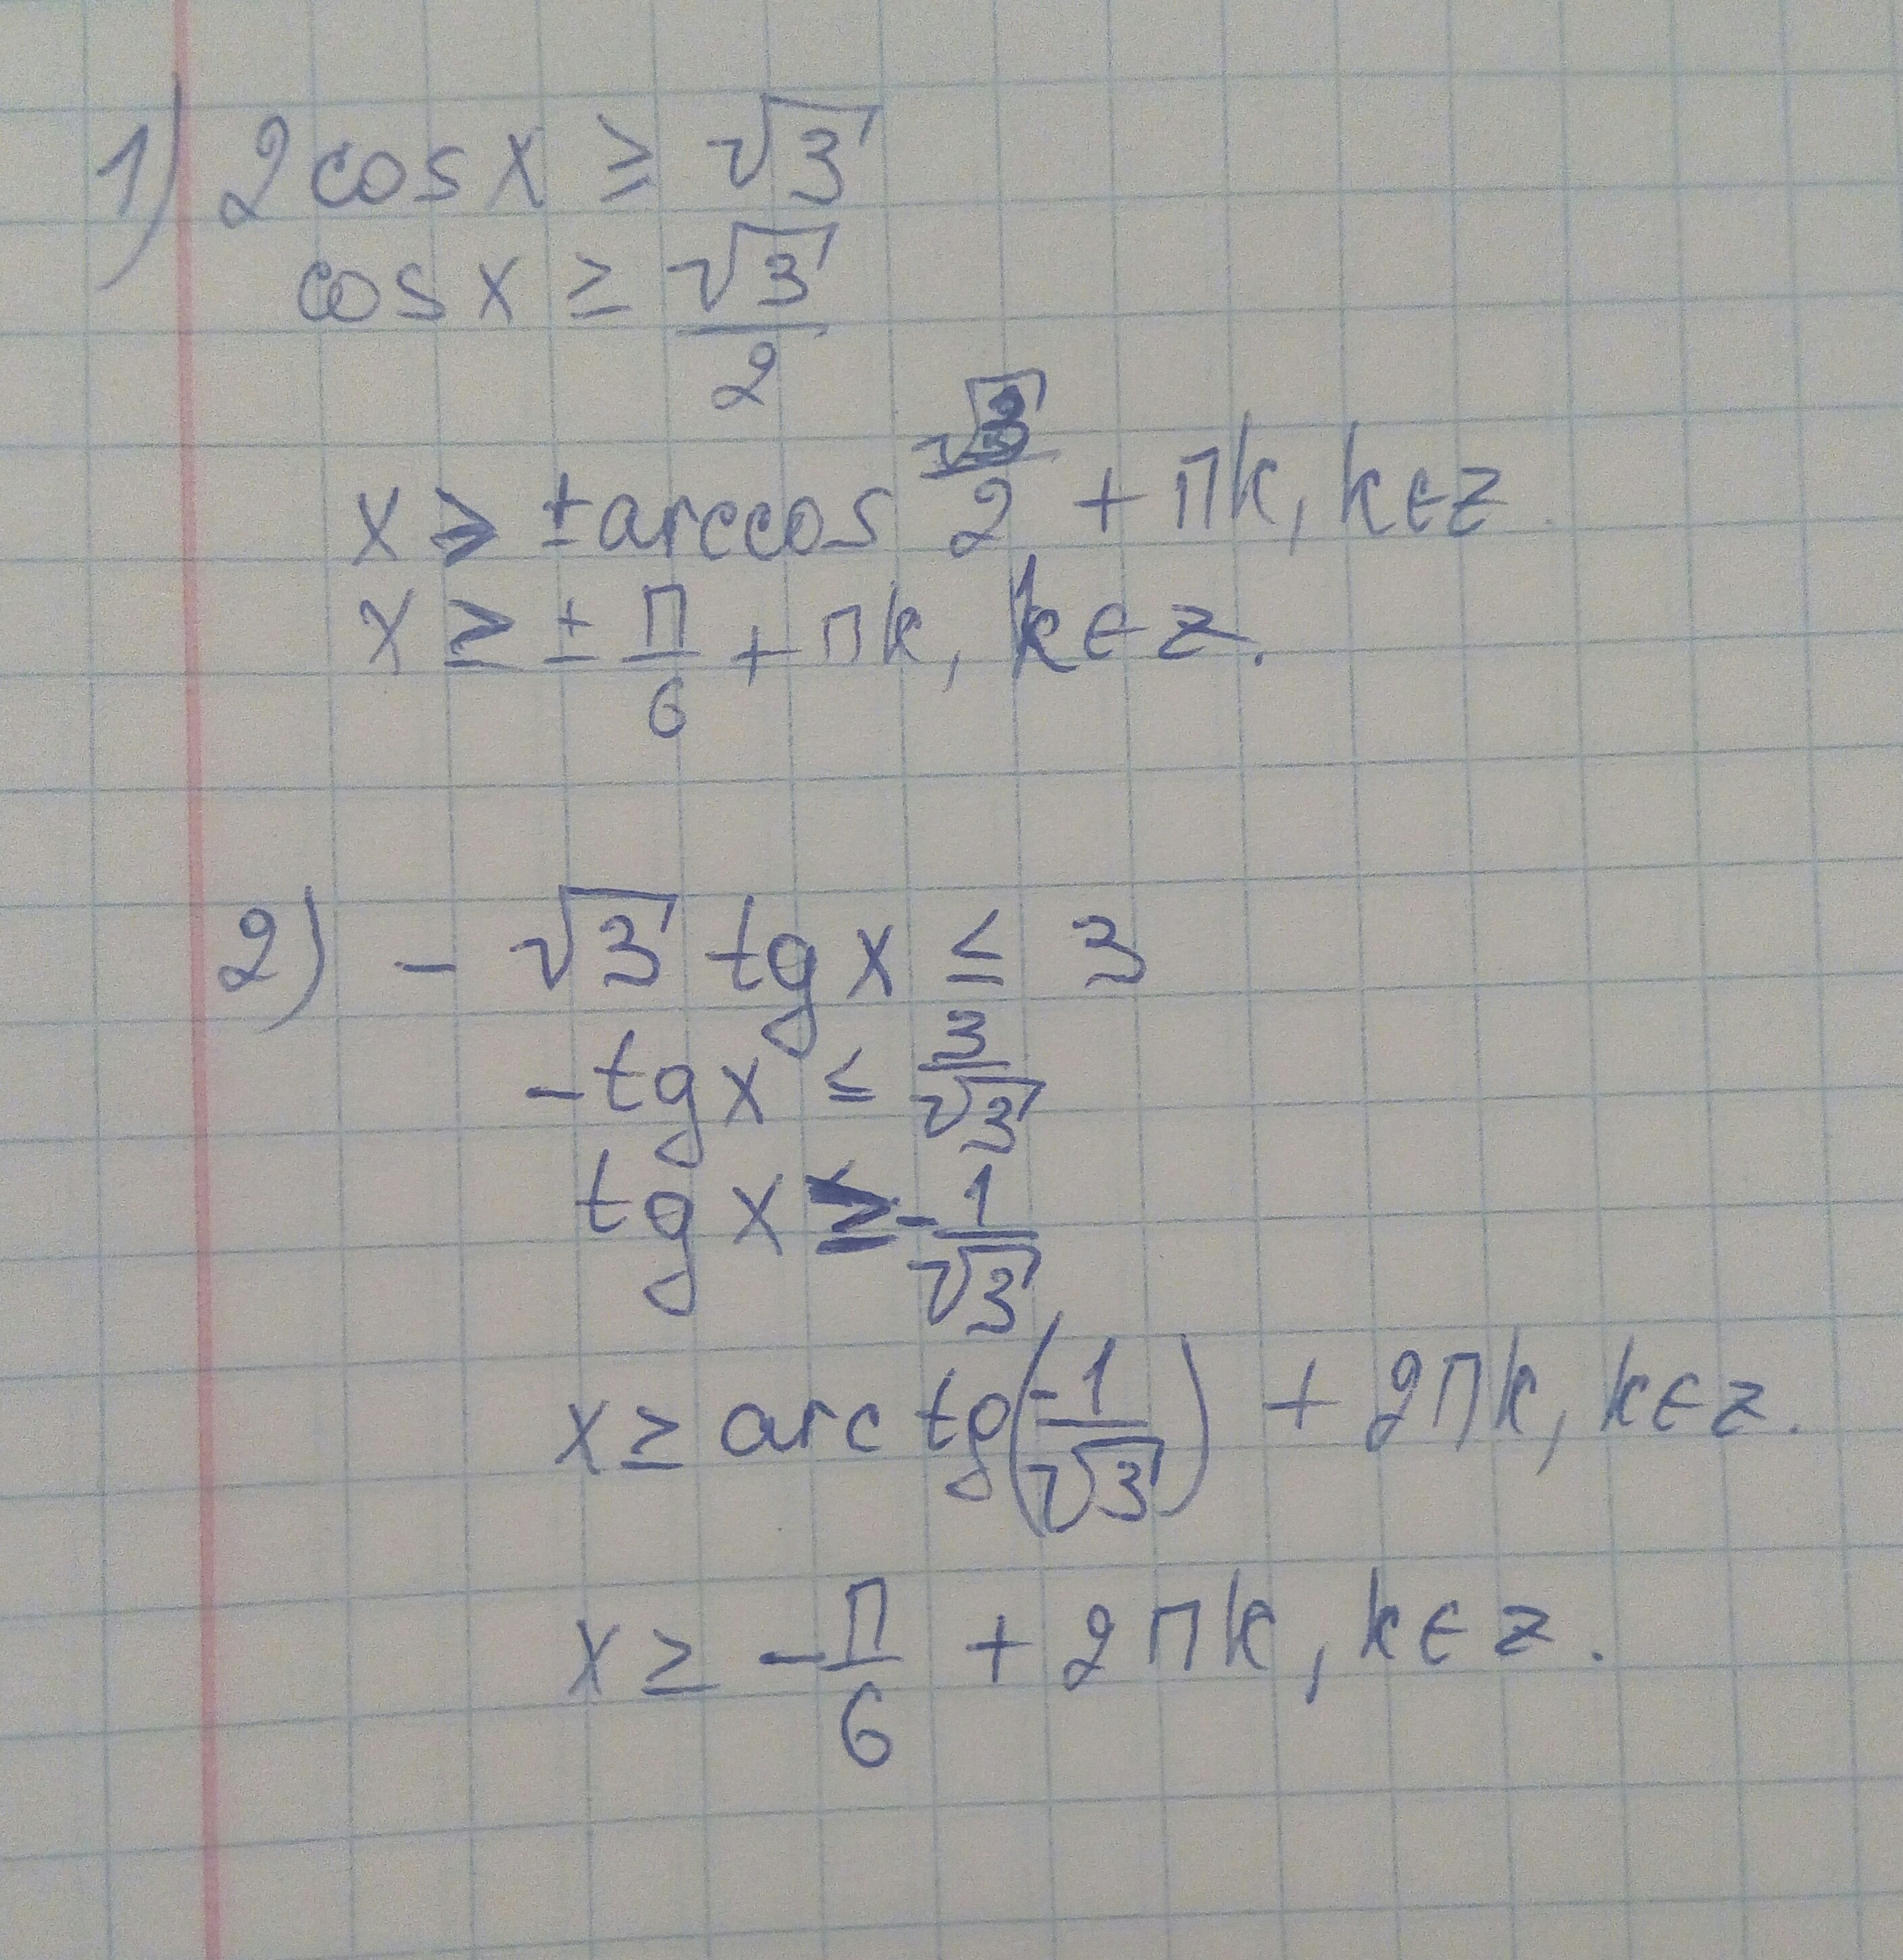 1) 2 cos x ≥ √3
cos x ≥ √3/2
x ≥ ± arccos √3/2 + πk, k∈z
x ≥ ± π/6 + πk, k∈z.
2) - √3 tg x ≤ 3
- tg x ≤ 3/√3
tg x ≥ - 1/√3
x ≥ arc tg(-1/√3) + 2πk, k∈z.
x ≥ - π/6 + 2πk, k∈z.